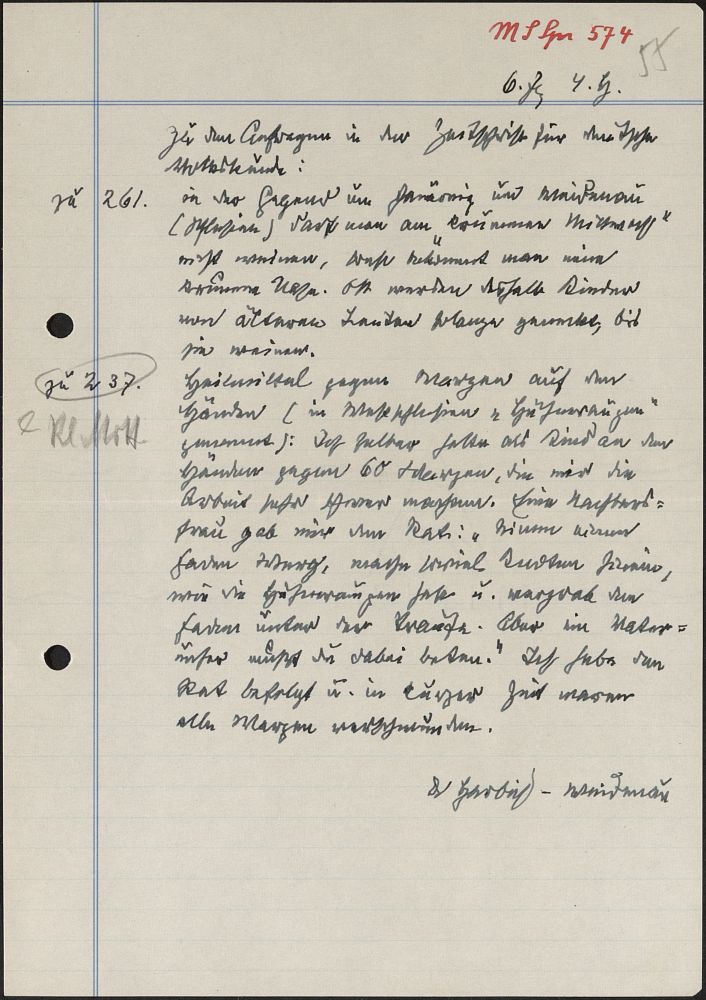 MS Spr 574
55
6. Jg. 4. H.
Zu den Anfragen in der Zeitschrift für deutsche
Volkskunde:
zu 261. in der Gegend um Jauernig und Weidenau
(Schlesien) darf man am „krummen Mittwoch"
nicht weinen, sonst bekommt man eine
krumme Nase. Oft werden deshalb Kinder
von älteren Leuten solange geneckt, bis
sie weinen.
zu 237. Heilmittel gegen Warzen auf den
Händen (in Westschlesien „Hühneraugen"
genannt): Ich selber hatte als Kind an den
Händen gegen 60 Warzen, die mir die
Arbeit sehr schwer machten. Eine Nachbars-
frau gab mir den Rat: „Nimm einen
Faden Werg, mache soviel Knoten hinein,
wie du Hühneraugen hast u. vergrab den
Faden unter der Traufe. Aber ein Vater-
unser mußt du dabei beten." Ich habe den
Rat befolgt u. in kurzer Zeit waren
alle Warzen verschwunden.
Harbich – Weidenau